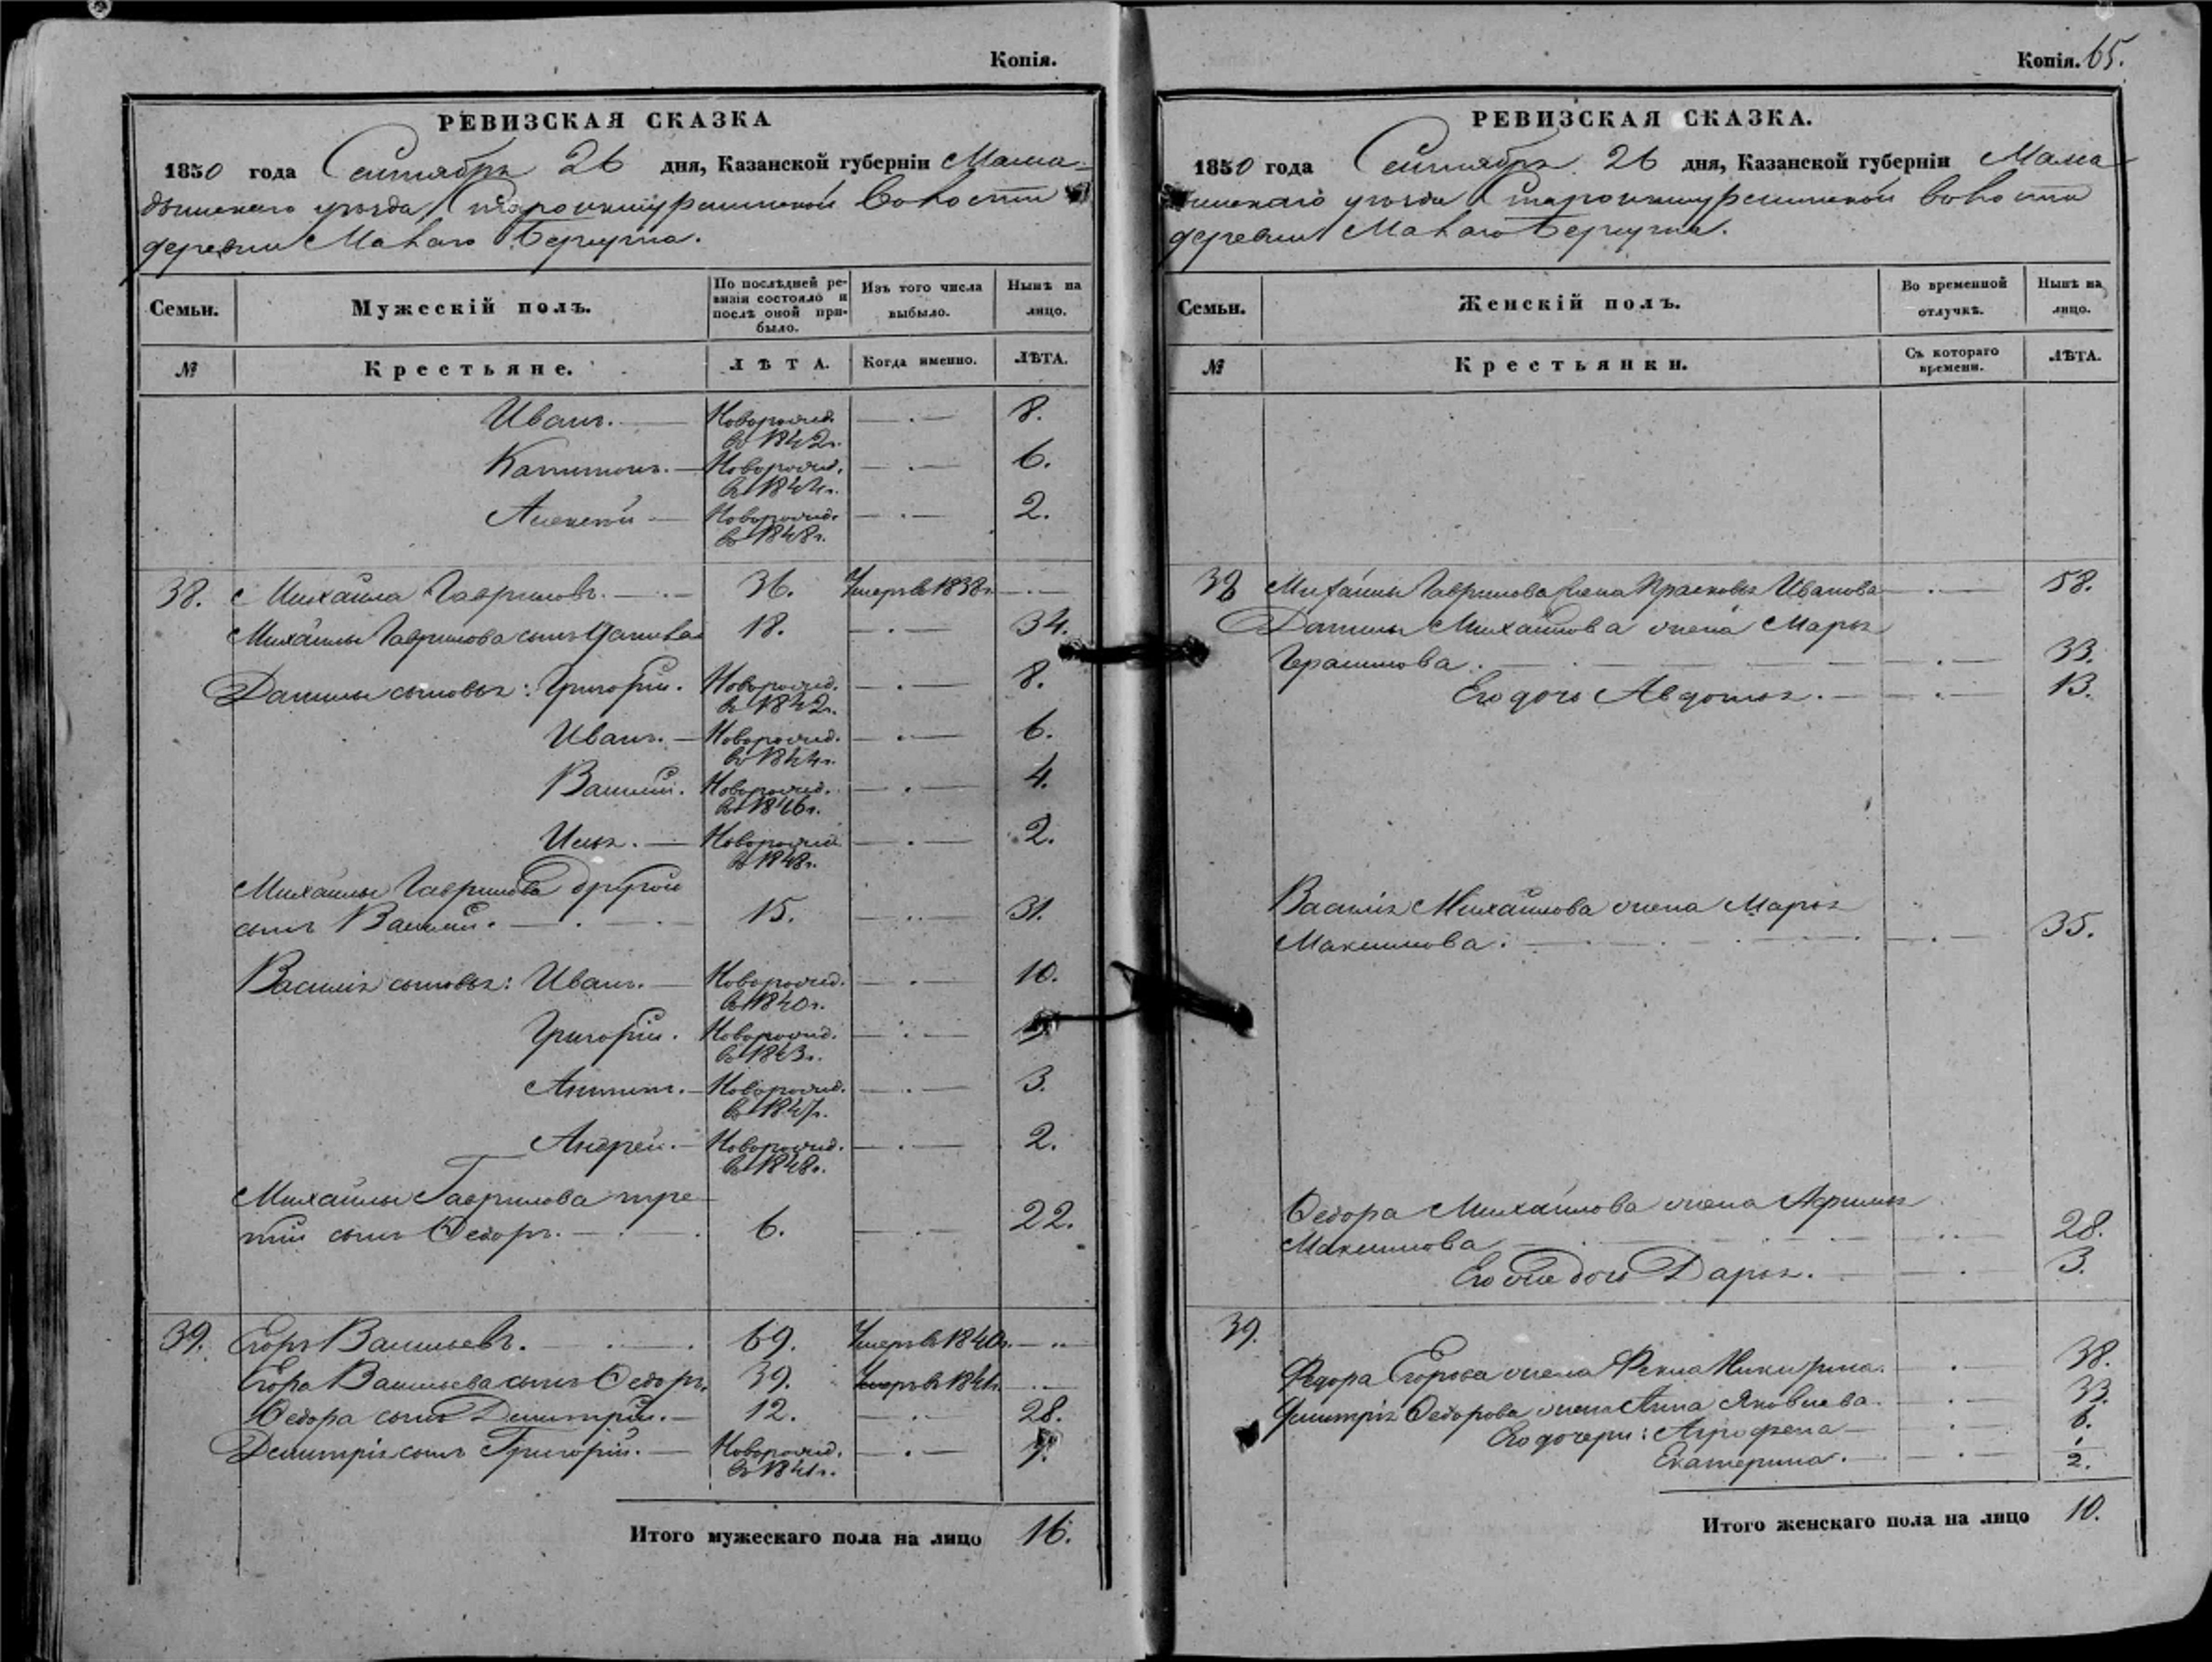 Копія.
РЕВИЗСКАЯ СКАЗКА
1850 года Сентября 26 дня, Казанской губерніи Мама-
дышскаго уѣзда
деревни Малаго Берсута.
Семьи. Мужескій полъ. По послѣдней ре-визіи состояло и послѣ оной при-было. Изъ того числа выбыло. Нынѣ на лицо.
№ Крестьяне. ЛѢТА. Когда именно. ЛѢТА.
Иванъ. Новорожд. въ 1842г. 8.
Капитонъ. Новорожд. въ 1844г. 6.
Алексѣй Новорожд. въ 1848г. 2.
38. Михайла Гавриловъ. 36. Умеръ въ 1838г.
Михайлы Гаврилова сынъ Данила 18. 34.
Данилы сыновья: Григорій. Новорожд. въ 1842г. 8.
Иванъ. Новорожд. въ 1844г. 6.
Василій. Новорожд. въ 1846г. 4.
Илья. Новорожд. въ 1848г. 2.
Михайлы Гаврилова другой
сынъ Василій. 15. 31.
Василія сыновья: Иванъ. Новорожд. въ 1840г. 10.
Григорій. Новорожд. въ 1843г.
Новорожд. въ 1847г. 3.
Андрей. Новорожд. въ 1848г. 2.
Михайлы Гаврилова тре-
тій сынъ Ѳедоръ. 6. 22.
39. Егоръ Васильевъ. 69. Умеръ въ 1840г.
Егора Васильева сынъ Ѳедоръ. 39. Умеръ въ
Ѳедора сынъ Дмитрій. 12. 28.
Дмитрія сынъ Григорій. Новорожд. въ 1841г. 9.
Итого мужескаго пола на лицо 16.
Копія. 65.
РЕВИЗСКАЯ СКАЗКА.
1850 года Сентября 26 дня, Казанской губерніи Мама-
дышскаго уѣзда
деревни Малаго Берсута.
Семьи. Женскій полъ. Во временной отлучкѣ. Нынѣ на лицо.
№ Крестьянки. Съ котораго времени. ЛѢТА.
38 Михайлы Гаврилова жена Прасковья Иванова 58.
Данилы Михайлова жена Марья
Герасимова. 33.
Его дочь Авдотья. 13.
Василія Михайлова жена Марья
Максимова. 35.
Ѳедора Михайлова жена
Максимова 28.
Его же дочь Дарья. 3.
39.
Ѳедора Егорова жена Фекла Никифорова. 38.
Дмитрія Ѳедорова жена Анна Яковлева. 33.
Его дочери: Агрофена 6.
Екатерина.
Итого женскаго пола на лицо 10.